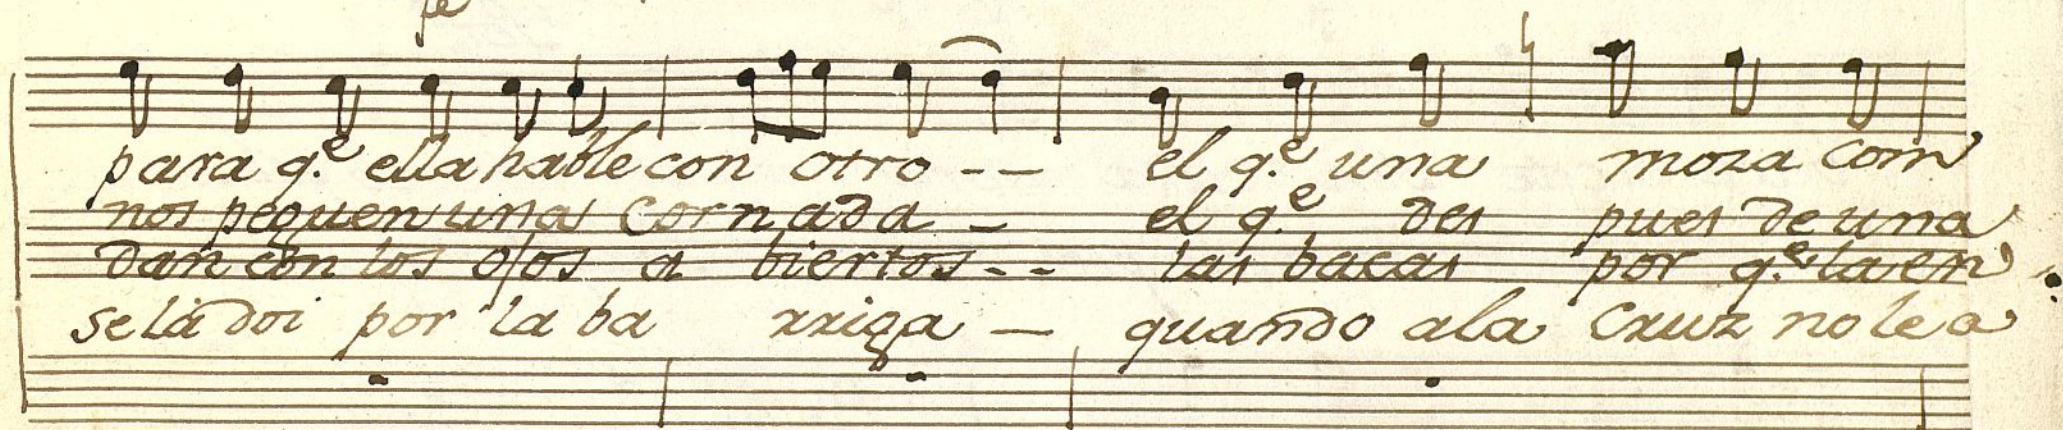 fe
para q.e ella hable con otro - -
el q.e una moza com
nos peguen una cornada -
el q.e des pues de una
dan con los ojos a biertos - -
las bacas por q.e la en
se la doi por la ba rriga -
quando ala Cruz no le a